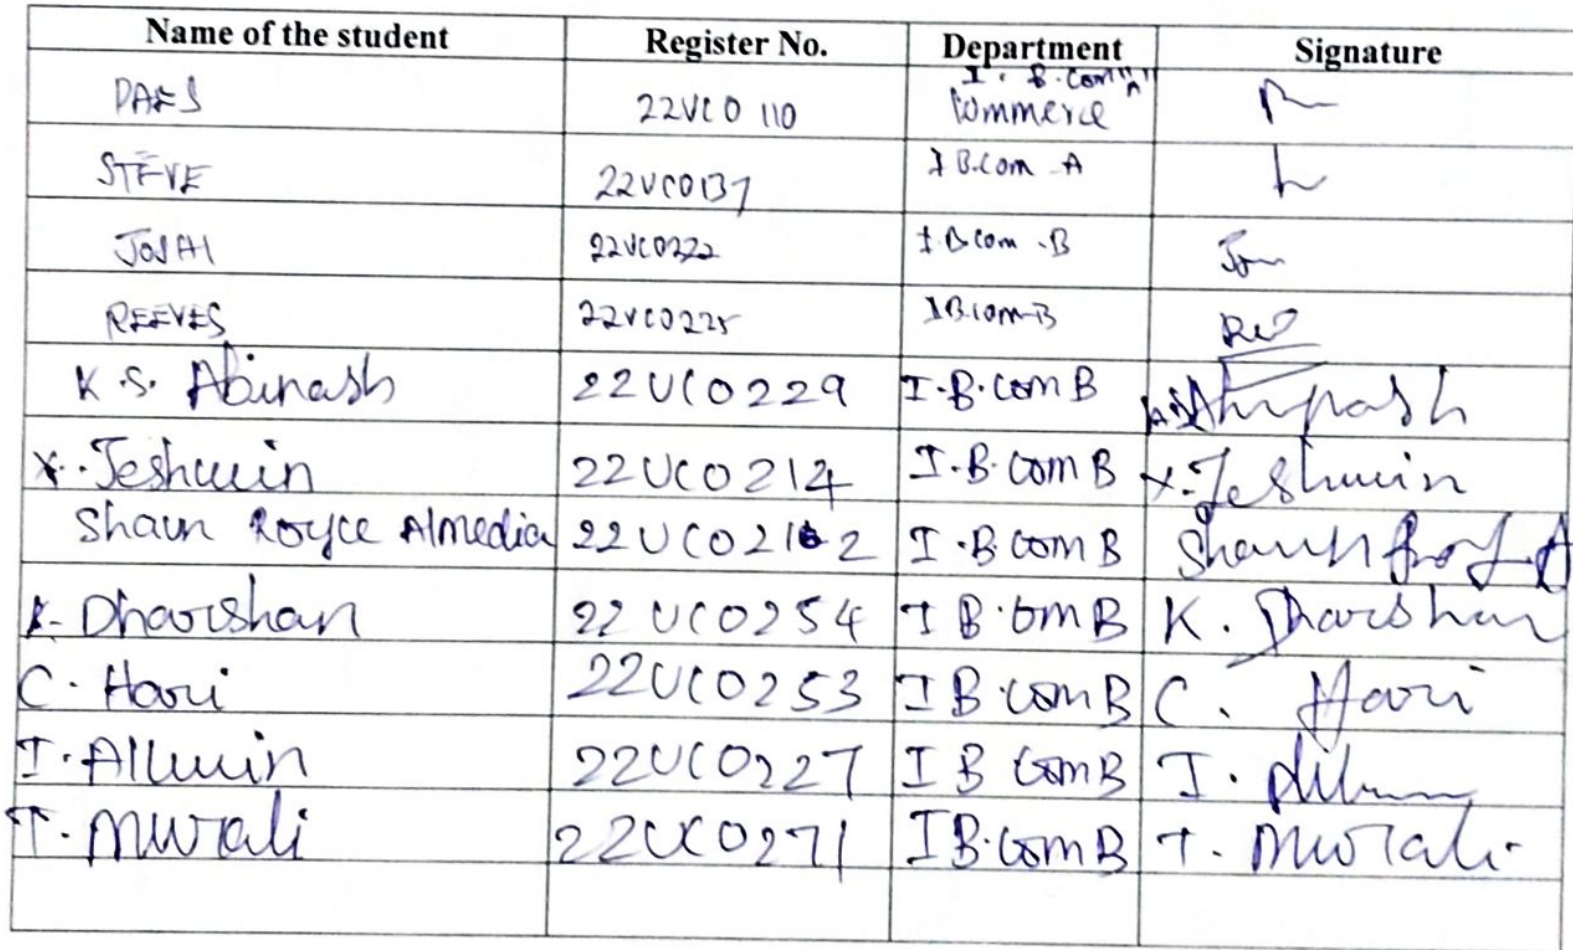 Name of the student Register No. Department Signature
PAES 22VCO 110 I. B.Com "A" Commerce
STEVE 22VCO137 I B.com -A
JOSHI 22VCO222 I.B.com -B
REEVES 22VCO225 I B.com-B
K.S. Abinash 22UCO229 I.B.com B
X. Jeshwin 22UCO214 I.B.com B X. Jeshwin
Shaun Royce Almedia 22UCO212 I.B.com B
K. Dharshan 22 UCO254 I B.com B K. Dharshan
C. Hari 22UCO253 I B.com B C. Hari
I. Allwin 22UCO227 I B com B
T. Murali 22UCO271 I B.com B T. Murali